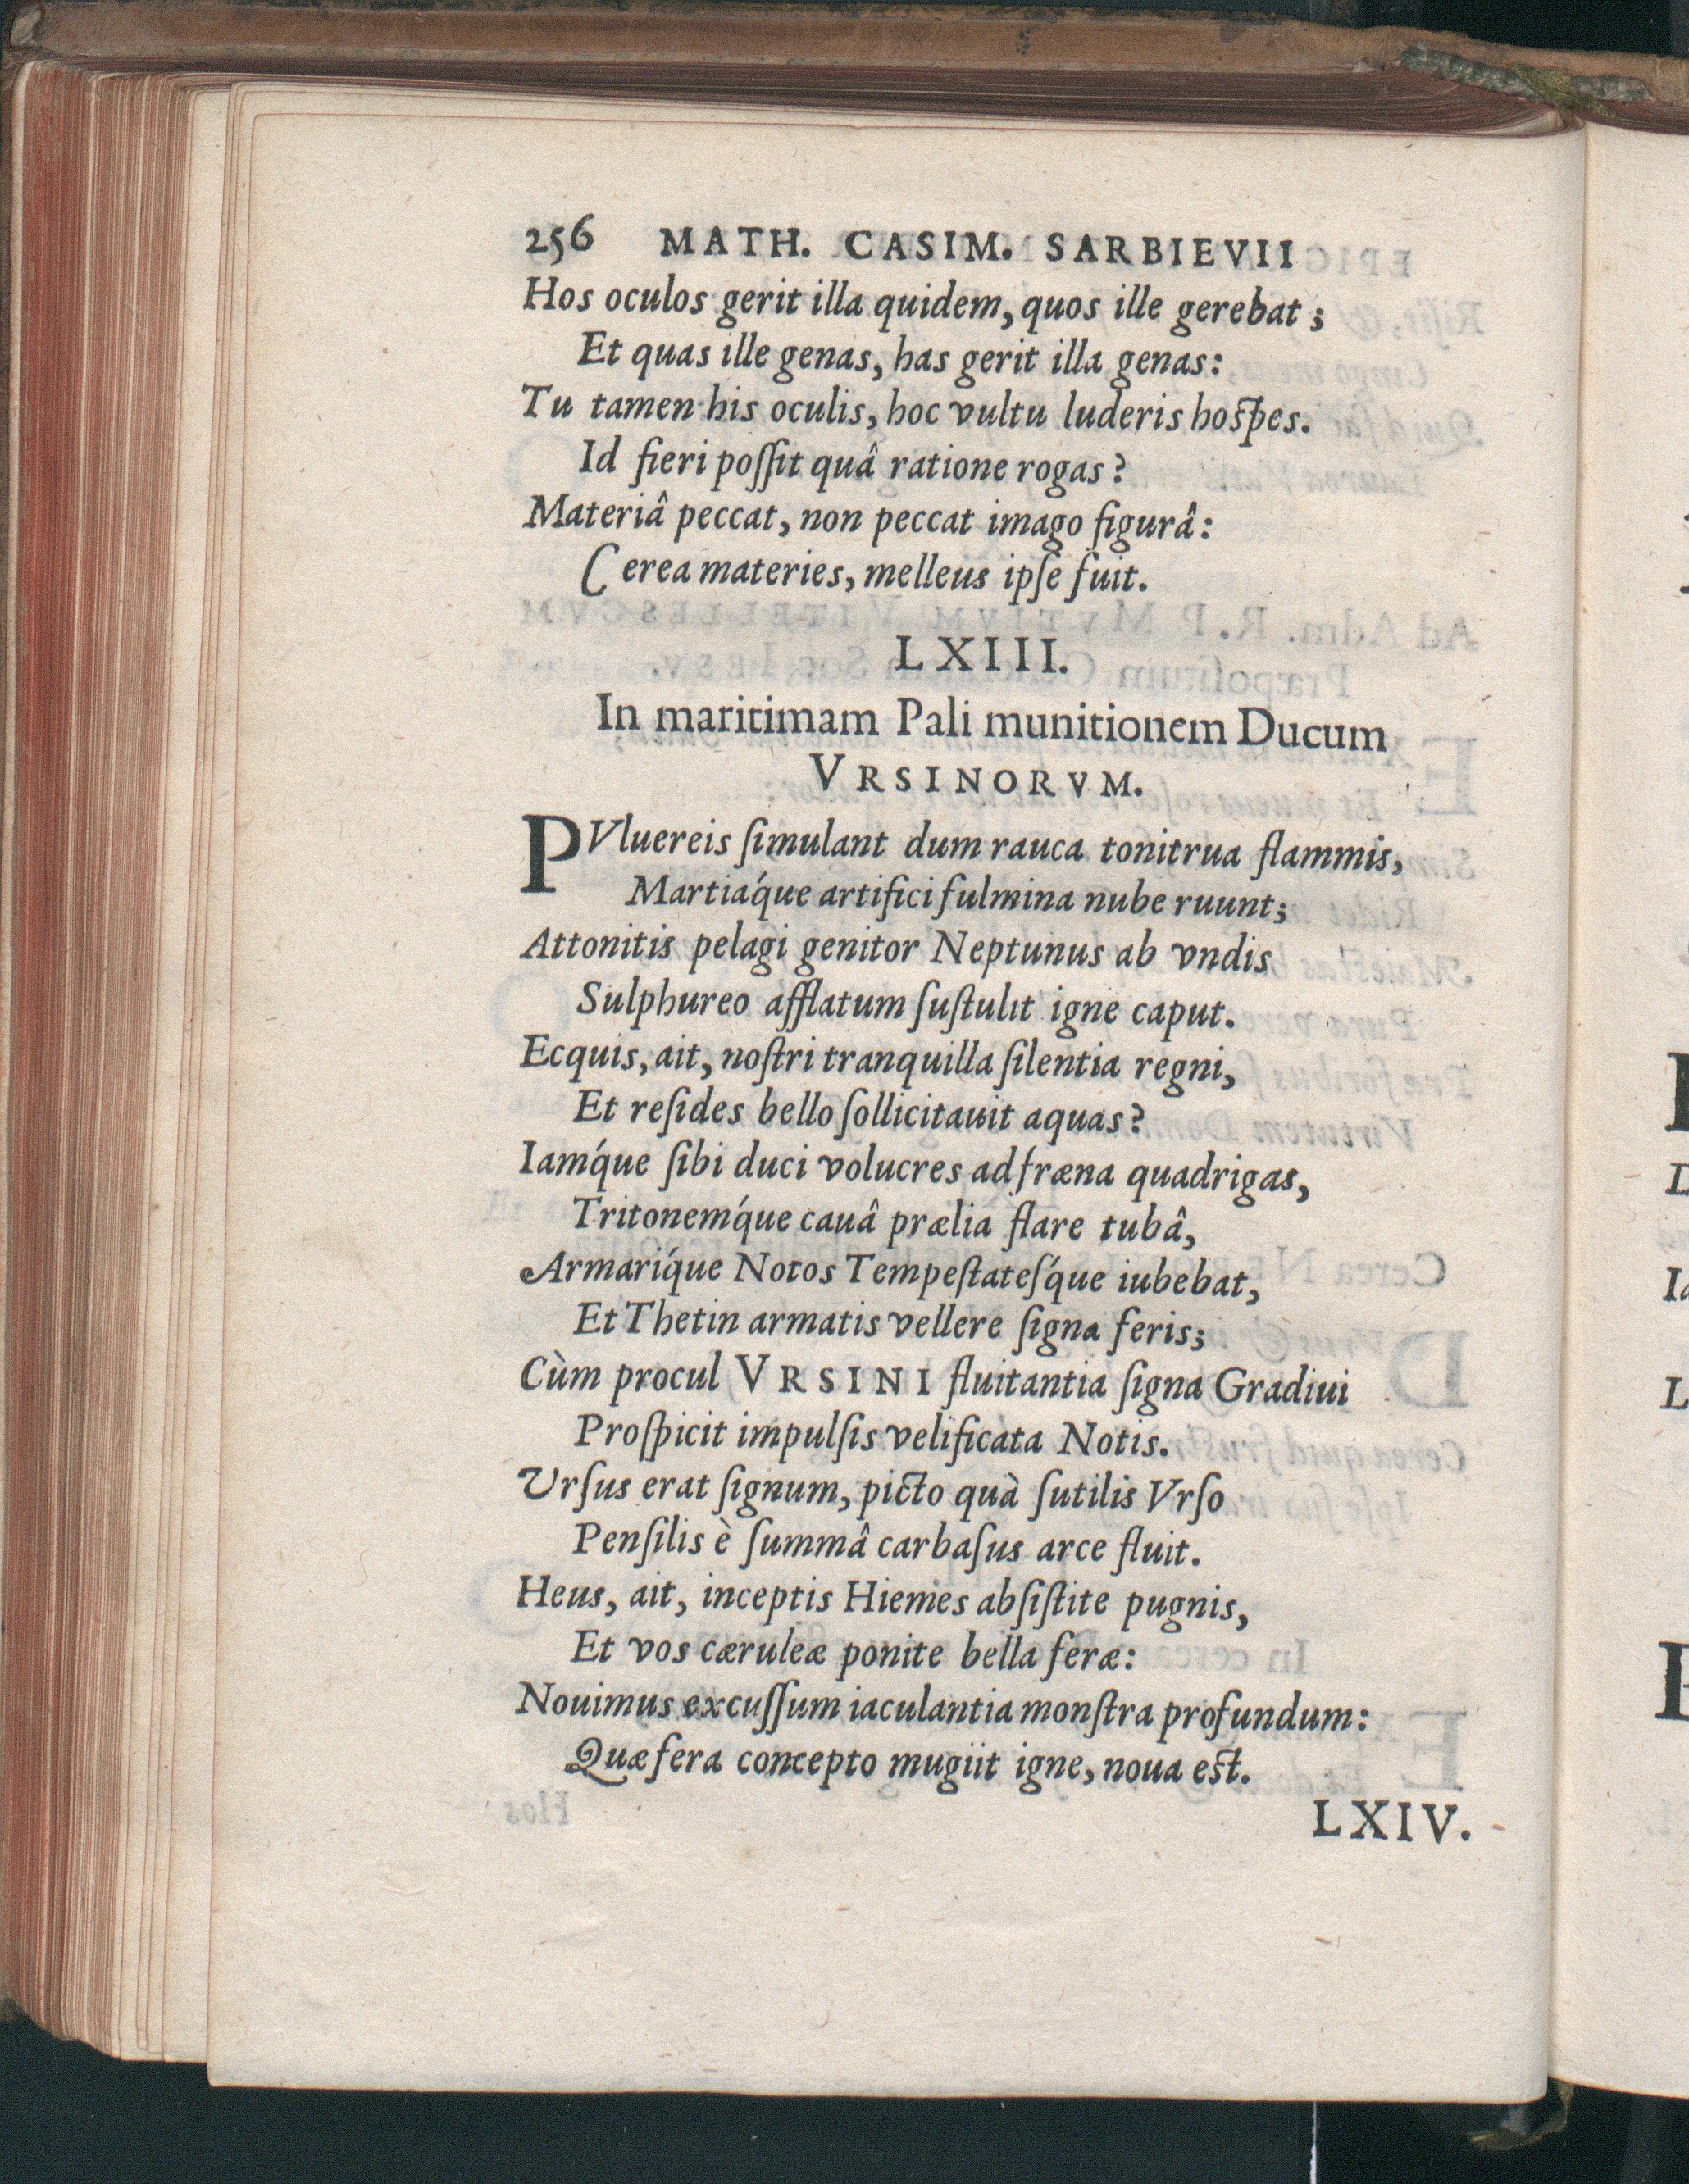 256 MATH. CASIM. SARBIEVII
Hos oculos gerit illa quidem, quos ille gerebat;
Et quas ille genas, has gerit illa genas:
Tu tamen his oculis, hoc vultu luderis hoſpes.
Id fieri poſſit quâ ratione rogas?
Materiâ peccat, non peccat imago figurâ:
Cerea materies, melleus ipſe fuit.
LXIII.
In maritimam Pali munitionem Ducum
VRSINORVM.
PVluereis ſimulant dum rauca tonitrua flammis,
Martiaq́ue artifici fulmina nube ruunt;
Attonitis pelagi genitor Neptunus ab vndis
Sulphureo afflatum ſuſtulit igne caput.
Ecquis, ait, noſtri tranquilla ſilentia regni,
Et reſides bello ſollicitauit aquas?
Iamq́ue ſibi duci volucres ad fræna quadrigas,
Tritonemq́ue cauâ prælia flare tubâ,
Armariq́ue Notos Tempeſtateſq́ue iubebat,
Et Thetin armatis vellere ſigna feris;
Cùm procul VRSINI fluitantia ſigna Gradiui
Proſpicit impulſis velificata Notis.
Vrſus erat ſignum, picto quà ſutilis Vrſo
Penſilis è ſummâ carbaſus arce fluit.
Heus, ait, inceptis Hiemes abſiſtite pugnis,
Et vos cæruleæ ponite bella feræ:
Nouimus excuſſum iaculantia monſtra profundum:
Quæ fera concepto mugiit igne, noua est.
LXIV.